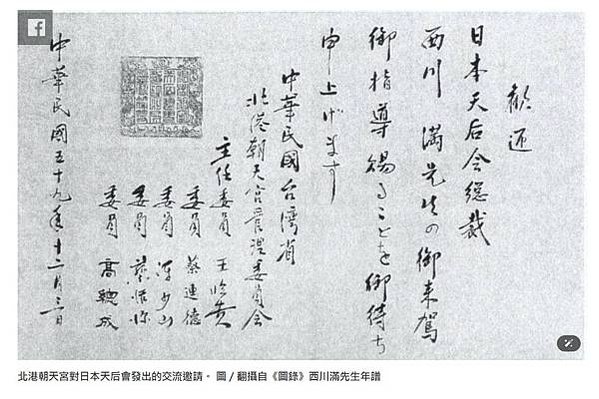 歓迎
日本天后会總裁
西川 満先生の御来駕
御指導賜ることを御待ち
申上げます
中華民國台湾省
北港朝天宮管理委員会
主任委員 王
委員 蔡連德
委員
委員
委員 高 成
中華民國五十九年十二月三日
北港朝天宮對日本天后會發出的交流邀請。 圖 / 翻攝自《圖錄》西川滿先生年譜